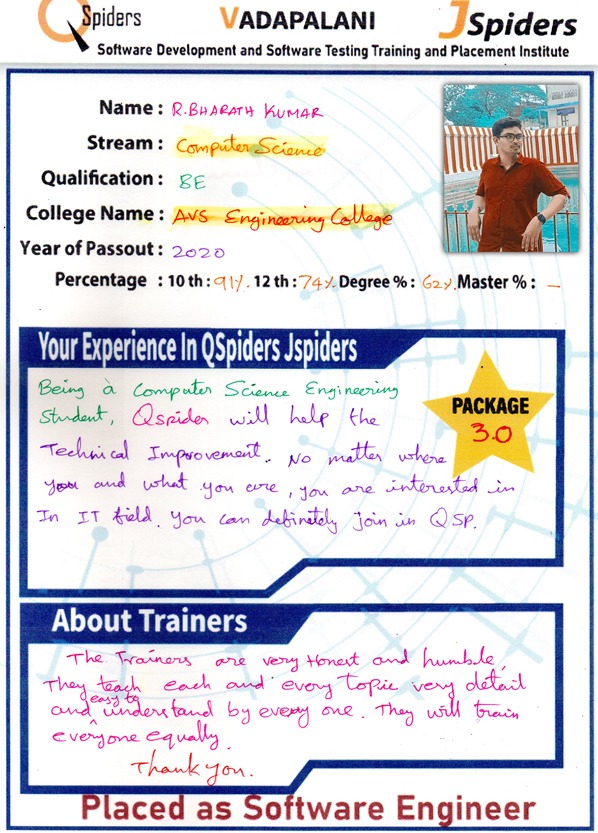 QSpiders VADAPALANI JSpiders
Software Development and Software Testing Training and Placement Institute
Name : R.BHARATH KUMAR
Stream : Computer Science
Qualification : BE
College Name : AVS Engineering College
Year of Passout : 2020
Percentage : 10 th : 91%. 12 th : 74%. Degree % : 62%. Master % : –
Your Experience In QSpiders Jspiders
Being a Computer Science Engineering
Student, Qspider will help the
Technical Improvement. No matter where
you and what you are, you are interested in
In IT field. You can definately join in QSP.
PACKAGE
3.0
About Trainers
The Trainers are very Honest and humble,
They teach each and every topic very detail
and easy to understand by every one. They will train
everyone equally.
Thank you.
Placed as Software Engineer